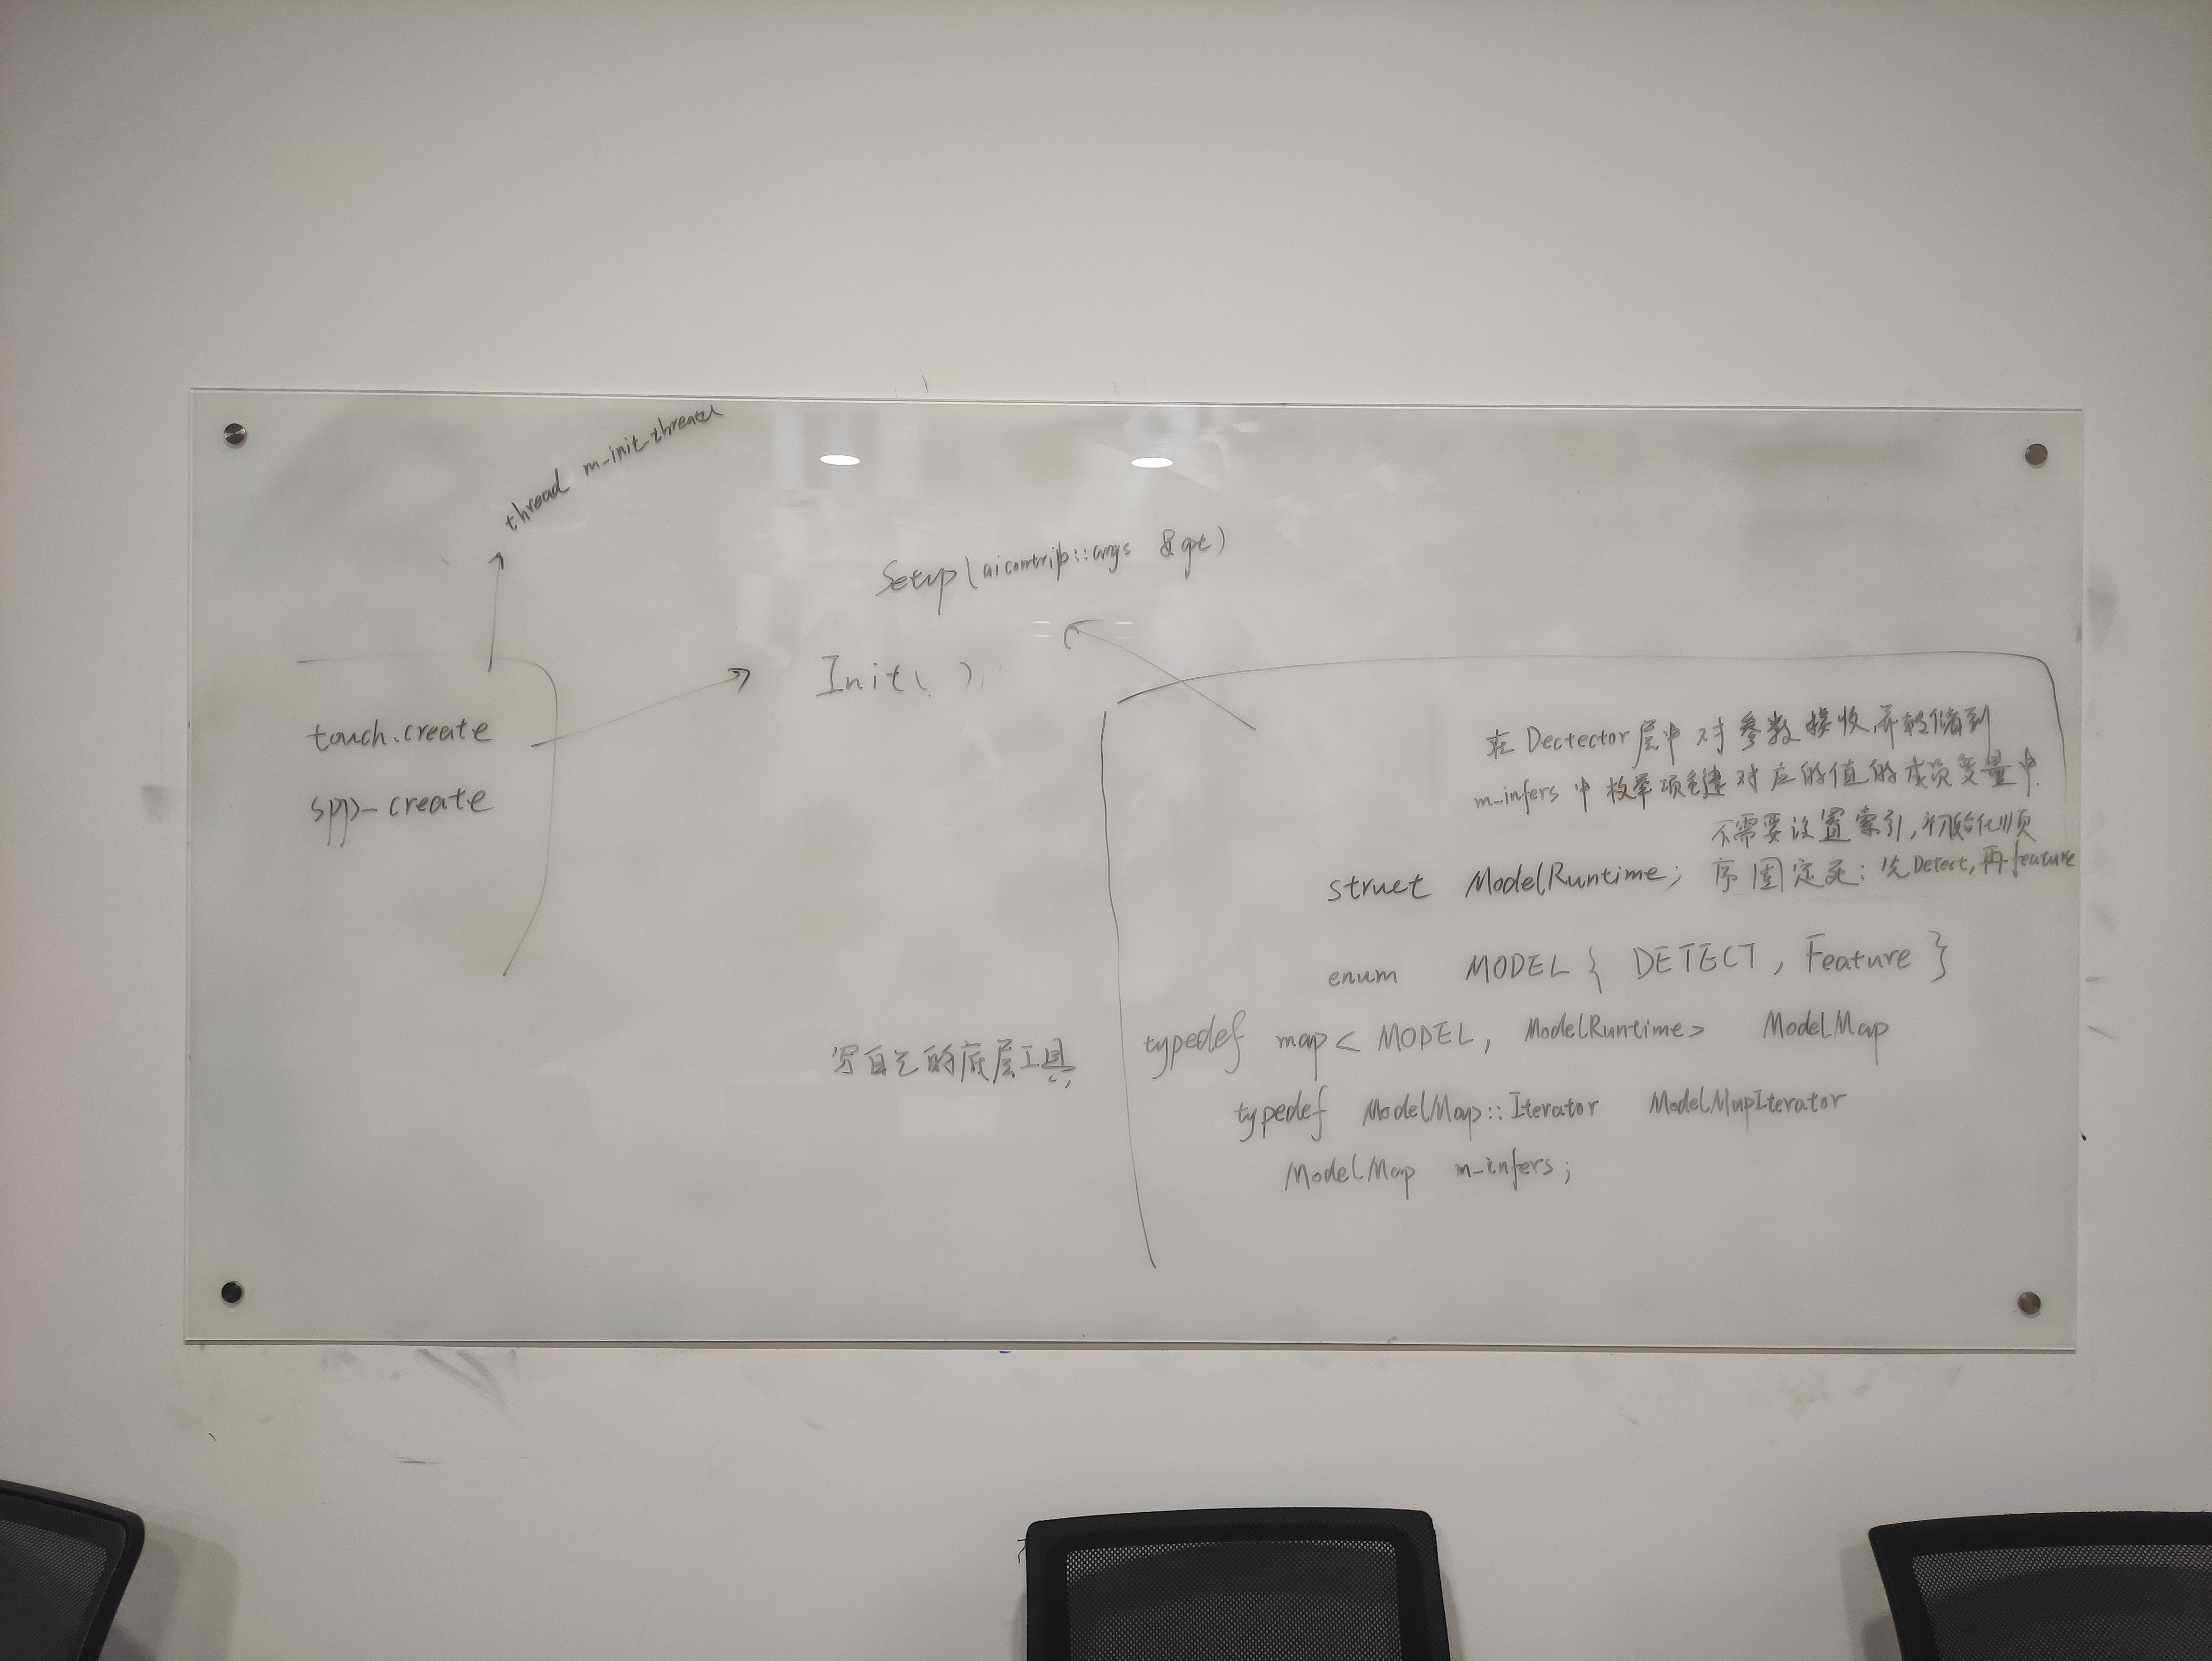 thread m_init_thread
Setup(aicontrib::args &opt)
Init( );
touch.create
spp_create
在Dectector层中对参数接收,并转储到
m_infers中枚举项键对应的值的成员变量中.
不需要设置索引,初始化顺
struct ModelRuntime; 序固定死:先Detect,再feature
enum MODEL { DETECT, Feature }
写自己的底层工具
typedef map< MODEL, ModelRuntime> ModelMap
typedef ModelMap::Iterator ModelMapIterator
ModelMap m_infers;